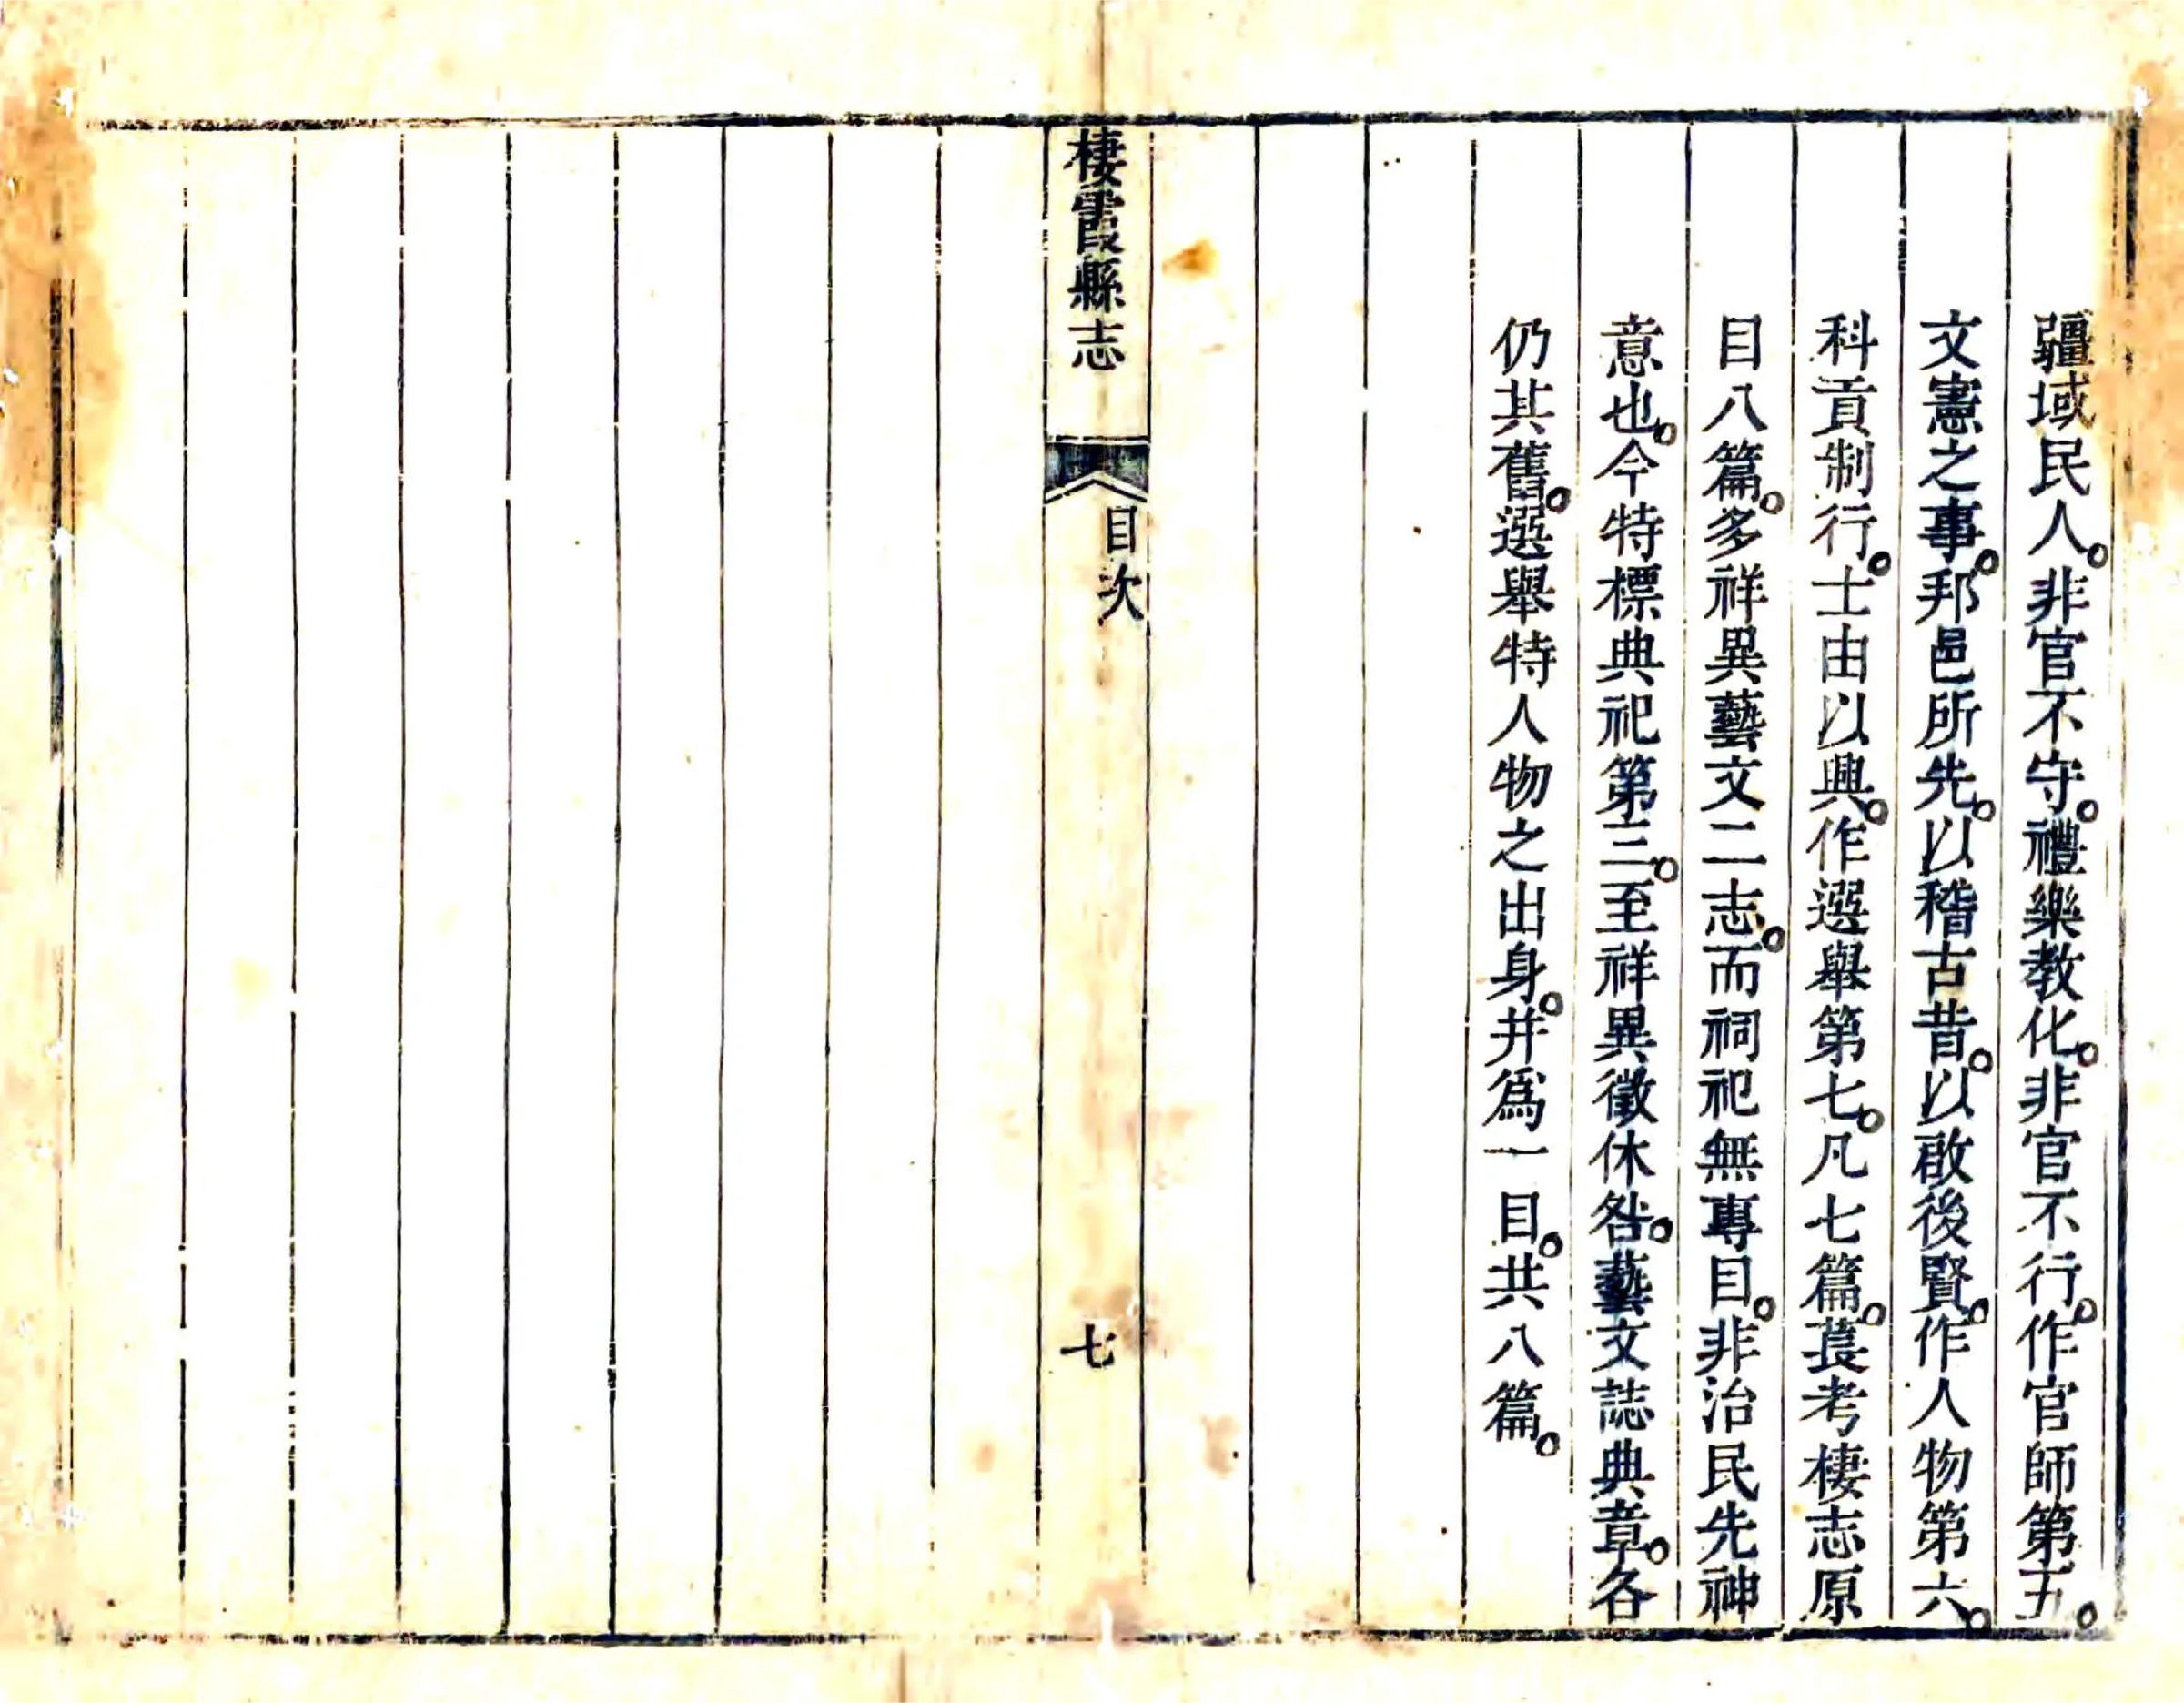 疆域民人。非官不守。禮樂教化。非官不行。作官師第五。
文憲之事。邦邑所先。以稽古昔。以啟後賢。作人物第六。
科貢制行。士由以興。作選舉第七。凡七篇。萇考棲志原
目八篇。多祥異藝文二志。而祠祀無專目。非治民先神
意也。今特標典祀第三。至祥異徵休咎。藝文誌典章。各
仍其舊。選舉特人物之出身。并為一目。共八篇。
棲霞縣志
目次
七